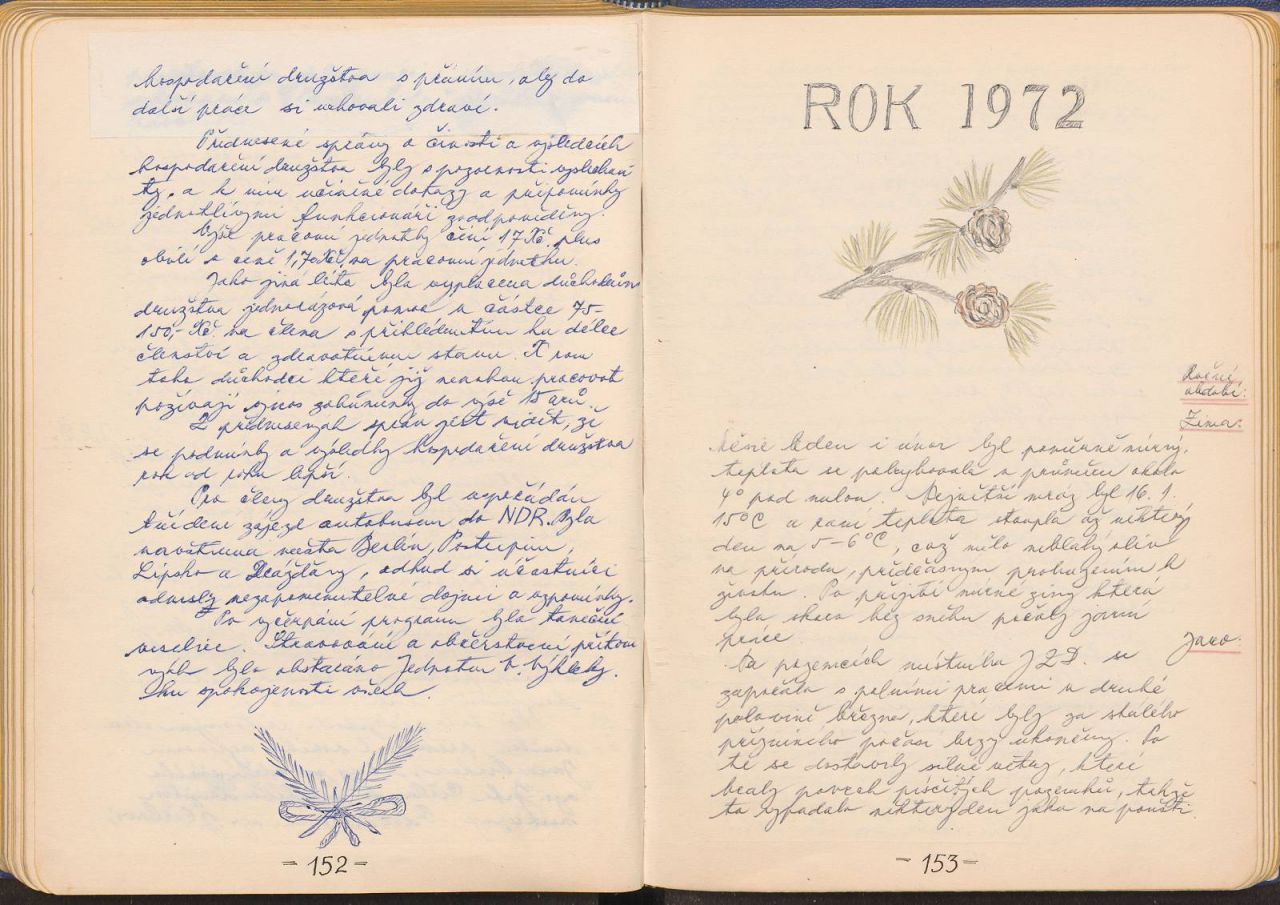 hospodaření družstva s přáním, aby do
další práce si uchovali zdraví.
Přednesené zprávy o činosti a výsledcích
hospodaření družstva byly s pozorností vyslechnu
ty, a k nim učiněné dotazy a připomínky
jednotlivými funkcionáři zodpověděny.
Výše pracovní jednotky činí 17 Kčs plus
obilí v ceně 1,70 Kčs na pracovní jednotku.
Jako jiná léta byla vyplacena důchodcům
družstva jednorázová pomoc v částce 75-
150,- Kčs na člena s přihlédnutím ku délce
členství a zdravotnímu stavu. K rom
toho důchodci kteří již nemohou pracovat
požívají výnos záhumenky do výše 15 arů.
Z přednesených zpráv jest vidět, že
se podmínky a výsledky hospodaření družstva
rok od roku lepší.
Pro členy družstva byl uspořádán
týdení zájezd autobusem do NDR. Byla
navštívena města Berlín, Postupim,
Lipsko a Drážďany, odkud si účastníci
odnesly nezapomenutelné dojmi a vzpomínky.
Po vyčerpání programu byla taneční
veselice. Stravování a občerstvení přítom
ných bylo obstaráno Jednotou V. Výkleky.
ku spokojenosti všech.
- 152 -
ROK 1972
Roční
období:
Zima:
měsíc leden i únor byl poměrně mírný,
teplota se pohybovala v průměru okolo
4° pod nulou. Největší mráz byl 16. 1.
15°C a ranní teplota stoupla až některý
den na 5-6°C, což mělo neblahý vliv
na přírodu, předčasným probuzením k
životu. Po příznivé mírné zimy která
byla skoro bez sněhu počaly jarní
práce.
Jaro:
Na pozemcích místního JZD. se
započalo s polními pracemi v druhé
polovině března, které byly za stálého
příznivého počasí brzy ukončeny. Po
té se dostavily silné větry, které
braly povrch písčitých pozemků, takže
to vypadalo některý den jako na poušti.
- 153 -